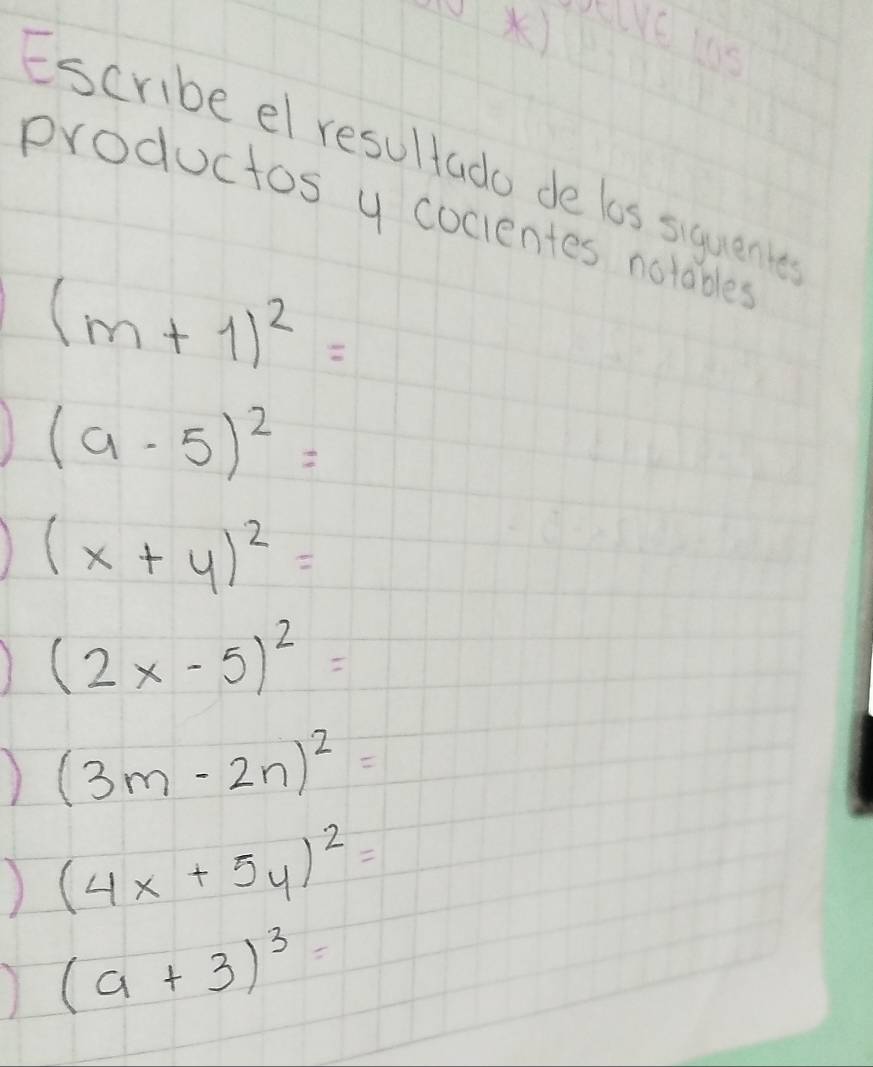 *)
los
Escribe el resultado de los siguientes
productos y cocientes notables
) (m + 1)² =
) (a - 5)² =
) (x + y)² =
) (2x - 5)² =
) (3m - 2n)² =
) (4x + 5y)² =
) (a + 3)³ =